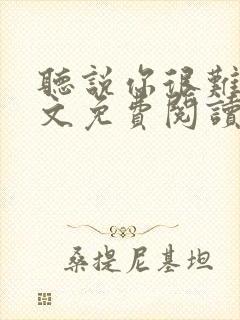 聽說你很難
文免費閱讀
桑提尼基坦